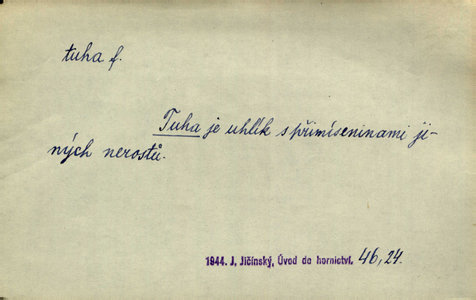 tuha f.
Tuha je uhlík s přimíseninami ji-
ných nerostů.
1944. J. Jičínský, Úvod do hornictví. 46,24.